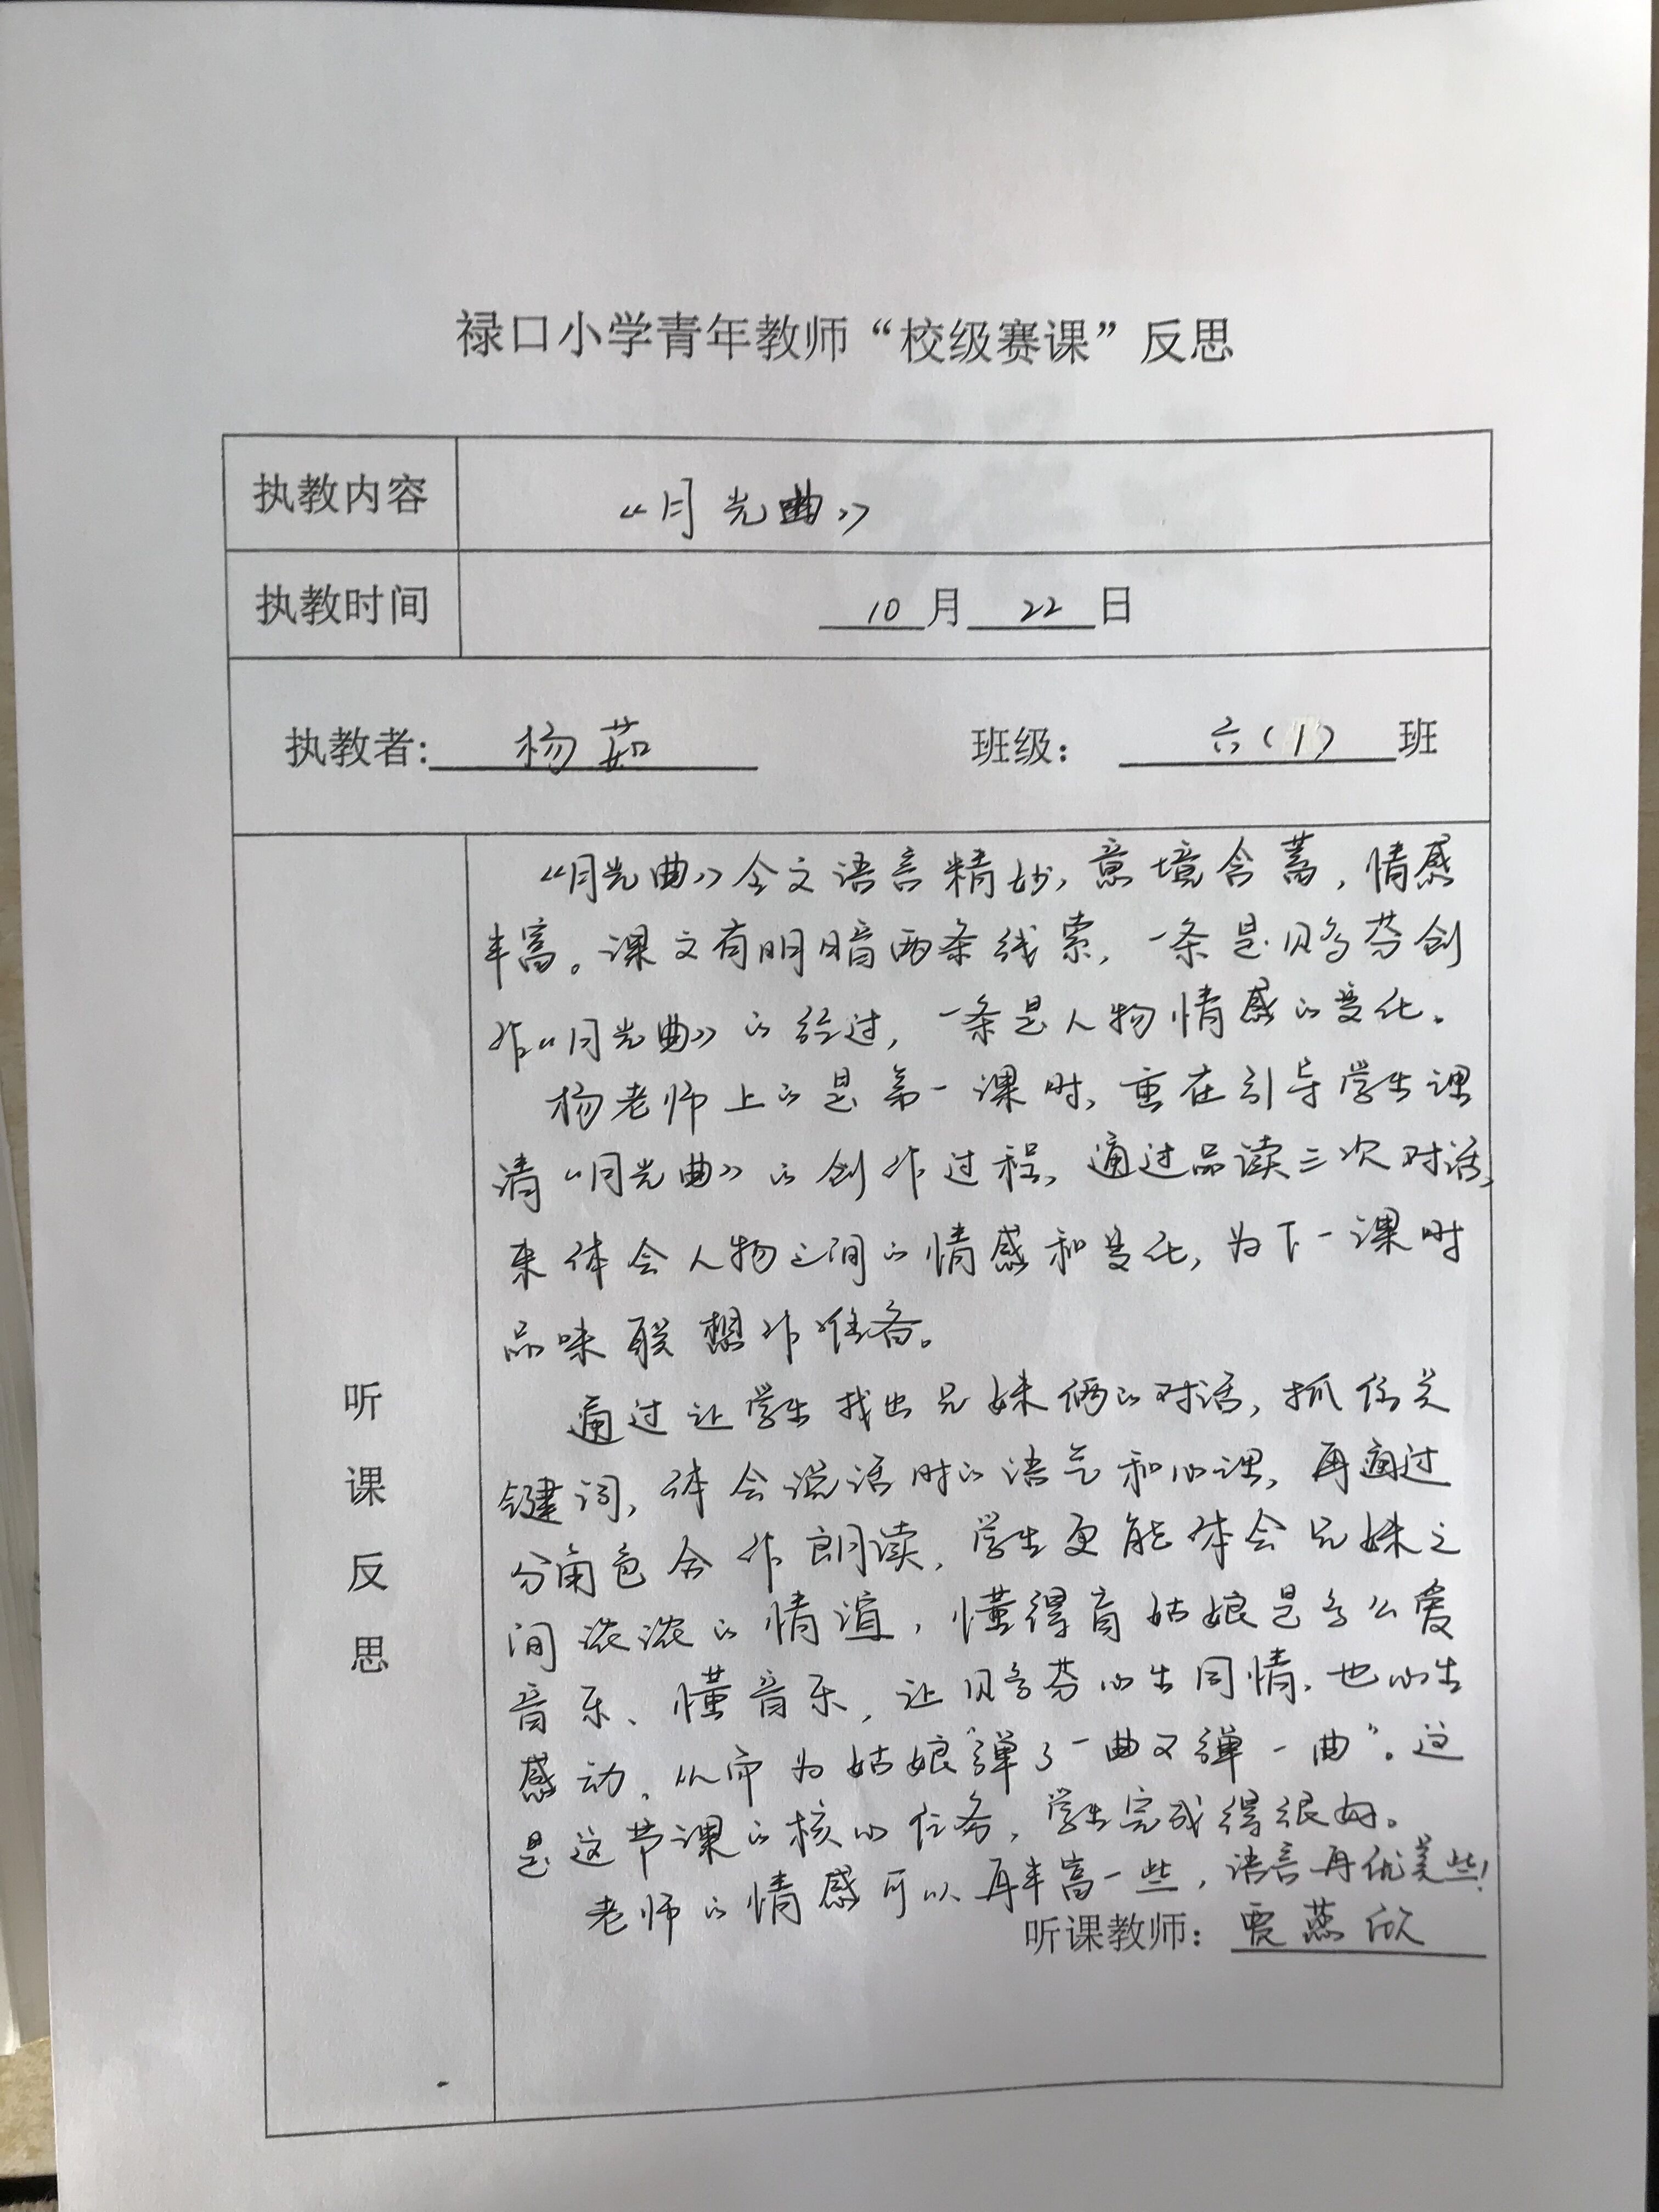 禄口小学青年教师“校级赛课”反思
执教内容
《月光曲》
执教时间
10月22日
执教者：杨茹 班级：六（1）班
听课反思
《月光曲》全文语言精妙，意境含蓄，情感
丰富。课文有明暗两条线索，一条是贝多芬创
作《月光曲》的经过，一条是人物情感的变化。
杨老师上的是第一课时，重在引导学生理
清《月光曲》的创作过程，通过品读三次对话，
来体会人物之间的情感和变化，为下一课时
品味联想作准备。
通过让学生找出兄妹俩的对话，抓住关
键词，体会说话时的语气和心理，再通过
分角色合作朗读，学生更能体会兄妹之
间浓浓的情谊，懂得盲姑娘是多么爱
音乐、懂音乐，让贝多芬心生同情，也心生
感动，从而为姑娘“弹了一曲又弹一曲”。这
是这节课的核心任务，学生完成得很好。
老师的情感可以再丰富一些，语言再优美些！
听课教师：燕欣